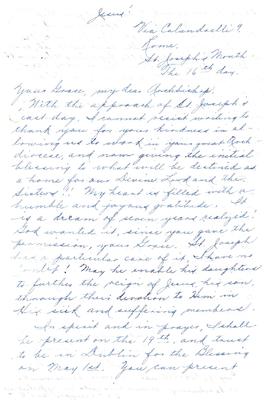 Jesus!
Via Calandrelli 9.
Rome.
St. Joseph's Month
The 16th day.
Your Grace, my dear Archbishop.
With the approach of St. Joseph's
east day, I cannot resist wishing to
thank you for your kindness in al-
lowing us to work in your great Arch
diocese, and now giving the initial
blessing to what will be destined as
a home for our Divine Lord and the
Sisters! My heart is filled with a
humble and joyous gratitude. It
is a dream of seven years realized!
God wanted it, since you gave the
permission, your Grace. St. Joseph
has a particular care of it, I have no
doubt! May he enable his daughters
to further the reign of Jesus, his son,
through their devotion to Him in
His sick and suffering members.
In spirit and in prayer, I shall
be present on the 19th, and trust
to be in Dublin for the Blessing
on May 1st. You can present